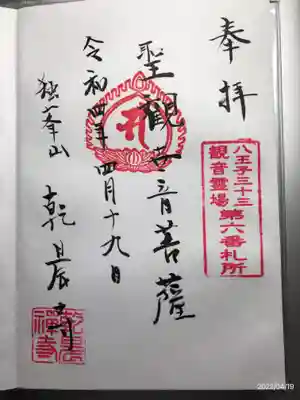 奉拝
八王子三十三
観音霊場
第六番札所
聖觀世音菩薩
令和四年四月十九日
独峯山 乾晨寺
乾晨
禪寺
2022/04/19